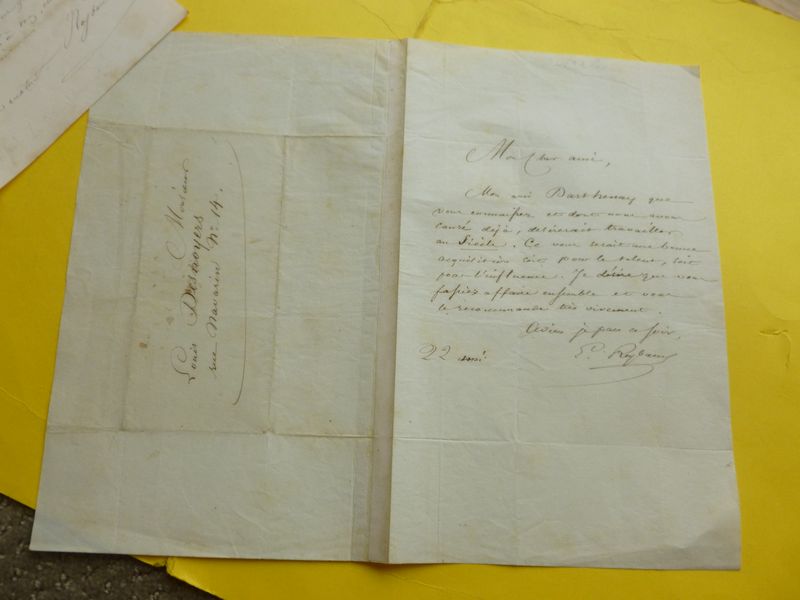 Monsieur
Louis Desnoyers
rue Navarin No 14.
Mon cher ami,
Mon ami Parthenay que
vous connaissez et dont nous avons
causé déjà, désirerait travailler
au Siècle. Ce vous serait une bonne
acquisition soit pour le talent, soit
pour l'influence. Je désire que vous
fassiez affaire ensemble et vous
le recommande très vivement.
Adieu je pars ce soir,
22 mai
L. Reybaud